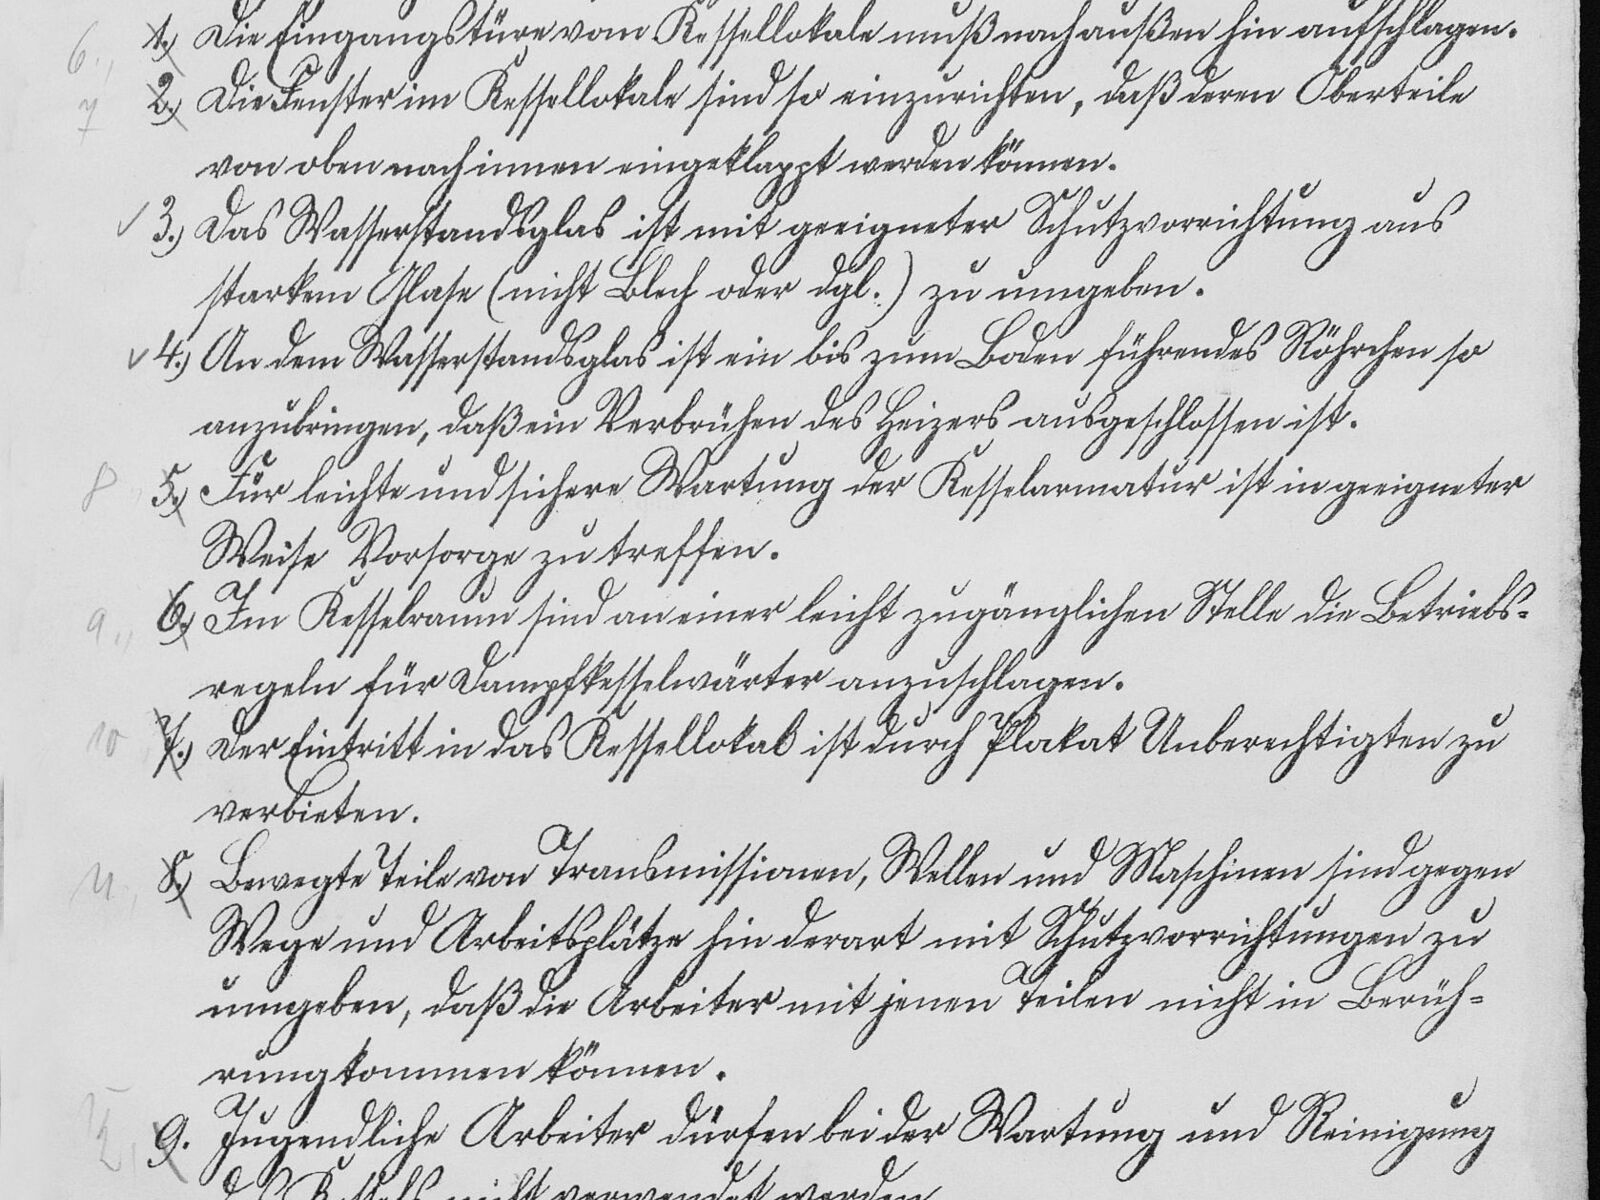 6., 1.) Die Eingangstüre vom Kessellokale muß nach außen hin aufschlagen.
7 2.) Die Fenster im Kessellokale sind so einzurichten, daß deren Oberteile
von oben nach innen eingeklappt werden können.
✓ 3.) Das Wasserstandsglas ist mit geeigneter Schutzvorrichtung aus
starkem Glase (nicht Blech oder dgl.) zu umgeben.
✓ 4.) An dem Wasserstandsglas ist ein bis zum Boden führendes Röhrchen so
anzubringen, daß ein Verbrühen des Heizers ausgeschlossen ist.
8 5.) Für leichte und sichere Wartung der Kesselarmatur ist in geeigneter
Weise Vorsorge zu treffen.
9., 6.) Im Kesselraum sind an einer leicht zugänglichen Stelle die Betriebs-
regeln für Dampfkesselwärter anzuschlagen.
10 7.) Der Eintritt in das Kessellokal ist durch Plakat Unberechtigten zu
verbieten.
11., 8.) Bewegte Teile von Transmissionen, Wellen und Maschinen sind gegen
Wege und Arbeitsplätze hin derart mit Schutzvorrichtungen zu
umgeben, daß die Arbeiter mit jenen Teilen nicht in Berüh-
rung kommen können.
12., 9. Jugendliche Arbeiter dürfen bei der Wartung und Reinigung
des Kessels nicht verwendet werden